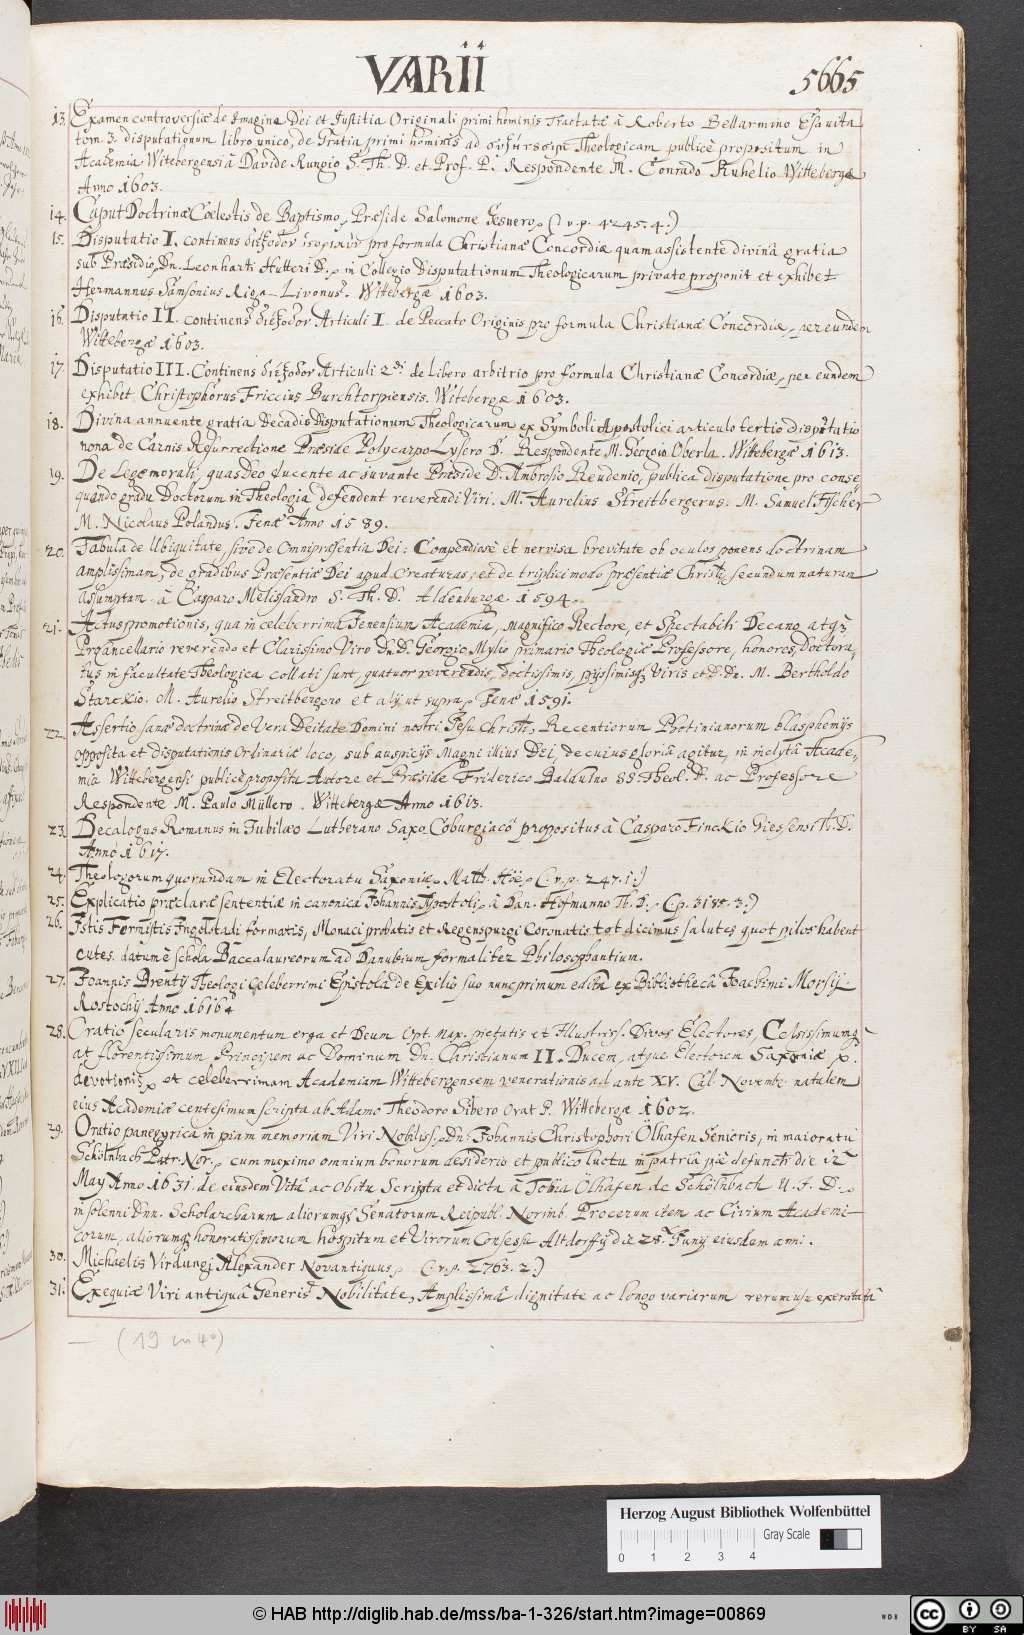 VARII
5665
13. Examen controversiæ de Imagine Dei et Justitia Originali primi hominis Tractatæ â Roberto Bellarmino Esavita
tom. 3. disputationum libro unico, de Gratia primi hominis ad Theologicam publicè propositum in
Academia Witebergensi â Davide Rungio S. Th. D. et Prof. P. Respondente M. Conrado Ruhelio Wittebergæ
Anno 1603.
14. Caput Doctrinæ Cœlestis de Baptismo, Præside Salomone Gesnero, (v. p. 4245. 4.)
15. Disputatio I. continens pro formula Christianæ Concordiæ quam assistente divinâ gratia
sub Præsidio, Dn. Leonharti Hutteri D. in Collegio Disputationum Theologicarum privato proponit et exhibet
Hermannus Samsonius Riga-Livonus. Wittebergæ 1603.
16. Disputatio II. continens Articuli I. de Peccato Originis pro formula Christianæ Concordiæ, per eundem
Wittebergæ 1603.
17. Disputatio III. Continens Articuli 2di de libero arbitrio pro formula Christianæ Concordiæ, per eundem
exhibet Christophorus Friccius Burchtorpiensis. Witebergæ 1603.
18. Divina annuente gratia Decadis Disputationum Theologicarum ex Symboli Apostolici articulo tertio disputatio
nona de Carnis Resurrectione Præside Polycarpo Lysero D. Respondente M. Georgio Oberla. Wittebergæ 1613.
19. De Lege morali, quas Deo ducente ac juvante Præside D. Ambrosio Reudenio, publica disputatione pro conse-
quendo gradu Doctorum in Theologia defendent reverendi Viri. M. Aurelius Streitbergerus. M. Samuel Fischer
M. Nicolaus Polandus. Jenæ Anno 1589.
20. Tabula de Ubiquitate, sive de Omnipræsentia Dei: Compendiosè et nervosa brevitate ob oculos ponens doctrinam
amplissimam, de gradibus Præsentiæ Dei apud creaturas, et de triplici modo præsentiæ Christi secundum naturam
assumptam. â Casparo Melissandro S. Th. D. Aldenburgæ 1594.
21. Actus promotionis, qua in celeberrima Jenensium Academia, magnifico Rectore, et Spectabili Decano, atq3
Procancellario reverendo et Clarissimo Viro Dn. D. Georgio Mylio primario Theologiæ Professore, honores Doctora-
tus in facultate Theologica collati sunt, quatuor reverendis, doctissimis, pijssimisq3 Viris et D. Dn. M. Bertholdo
M. Aurelio Streitbergero et alij ut supra, Jenæ 1591.
22. Assertio sanæ doctrinæ de Vera Deitate Domini nostri Jesu Christi, Recentiorum Photinianorum blasphemijs
opposita et Disputationis Ordinariæ loco, sub auspicijs Magni illius Dei, de cuius gloriâ agitur, in inclytâ Acade-
mia Wittebergensi publicè proposita Autore et Præside Friderico Balduino SS. Theol. D. ac Professore
Respondente M. Paulo Müllero. Wittebergæ Anno 1613.
23. Decalogus Romanus in Jubilæo Lutherano Saxo Coburgiaco propositus â Casparo Finckio Giessensi Th. D.
Anno 1617.
24. Theologorum quorundam in Electoratu Saxoniæ, Matth. Höe, (v. p. 247. 1.)
25. Explicatio præclaræ sententiæ in canonica Johannis Apostoli, â Dan. Hofmanno Th. D. (p. 3188. 3.)
26. Istis Formistis Ingolstadi formatis, Monaci probatis et Regenspurgi Coronatis tot dicimus salutes quot pilos habent
cutes. datum è schola Baccalaureorum ad Danubium formaliter Philosophantium.
27. Joannis Brentij Theologi Celeberrimi Epistola de Exilio suo nunc primum edita ex Bibliothecâ Joachimi Morsij.
Rostochij Anno 1616
28. Oratio secularis monumentum erga et Deum Opt. Max. pietatis et Illustriss. Divos Electores, Celsissimumq3
at florentissimum Principem ac Dominum Dn. Christianum II. Ducem, atque Electorem Saxoniæ,
devotionis, et celeberrimam Academiam Wittebergensem venerationis ad ante XV. Cal. Novemb. natalem
eius Academiæ centesimum scripta ab Adamo Theodoro Sibero Orat. P. Wittebergæ 1602.
29. Oratio panegyrica in piam memoriam Viri Nobiliss, Dn. Johannis Christophori Ölhafen Senioris, in maioratu
Schölnbach Patr. Nor., cum maximo omnium bonorum desiderio et publico luctu in patriâ piè defuncti die 12
May Anno 1631. de eiusdem Vitâ ac Obitu Scripta et dicta â Tobia Olhafen de Schölnbach U. J. D.,
in solenni Dnn. Scholarcharum aliorumq3 Senatorum Reipubl. Norimb. Procerum item ac Civium Academi-
corum, aliorumq3 honoratissimorum hospitum et Virorum Consessu Altdorffij die 28. Junij eiusdem anni.
30. Michaelis Virdungi Alexander Novantiquus, (v. p. 2763. 2.)
31. Exequiæ Viri antiquâ Generis Nobilitate, Amplissimâ dignitate ac longo variarum rerum usu
(19 in 4°)
Herzog August Bibliothek Wolfenbüttel
Gray Scale
0 1 2 3 4
© HAB http://diglib.hab.de/mss/ba-1-326/start.htm?image=00869
WDB
CC BY SA